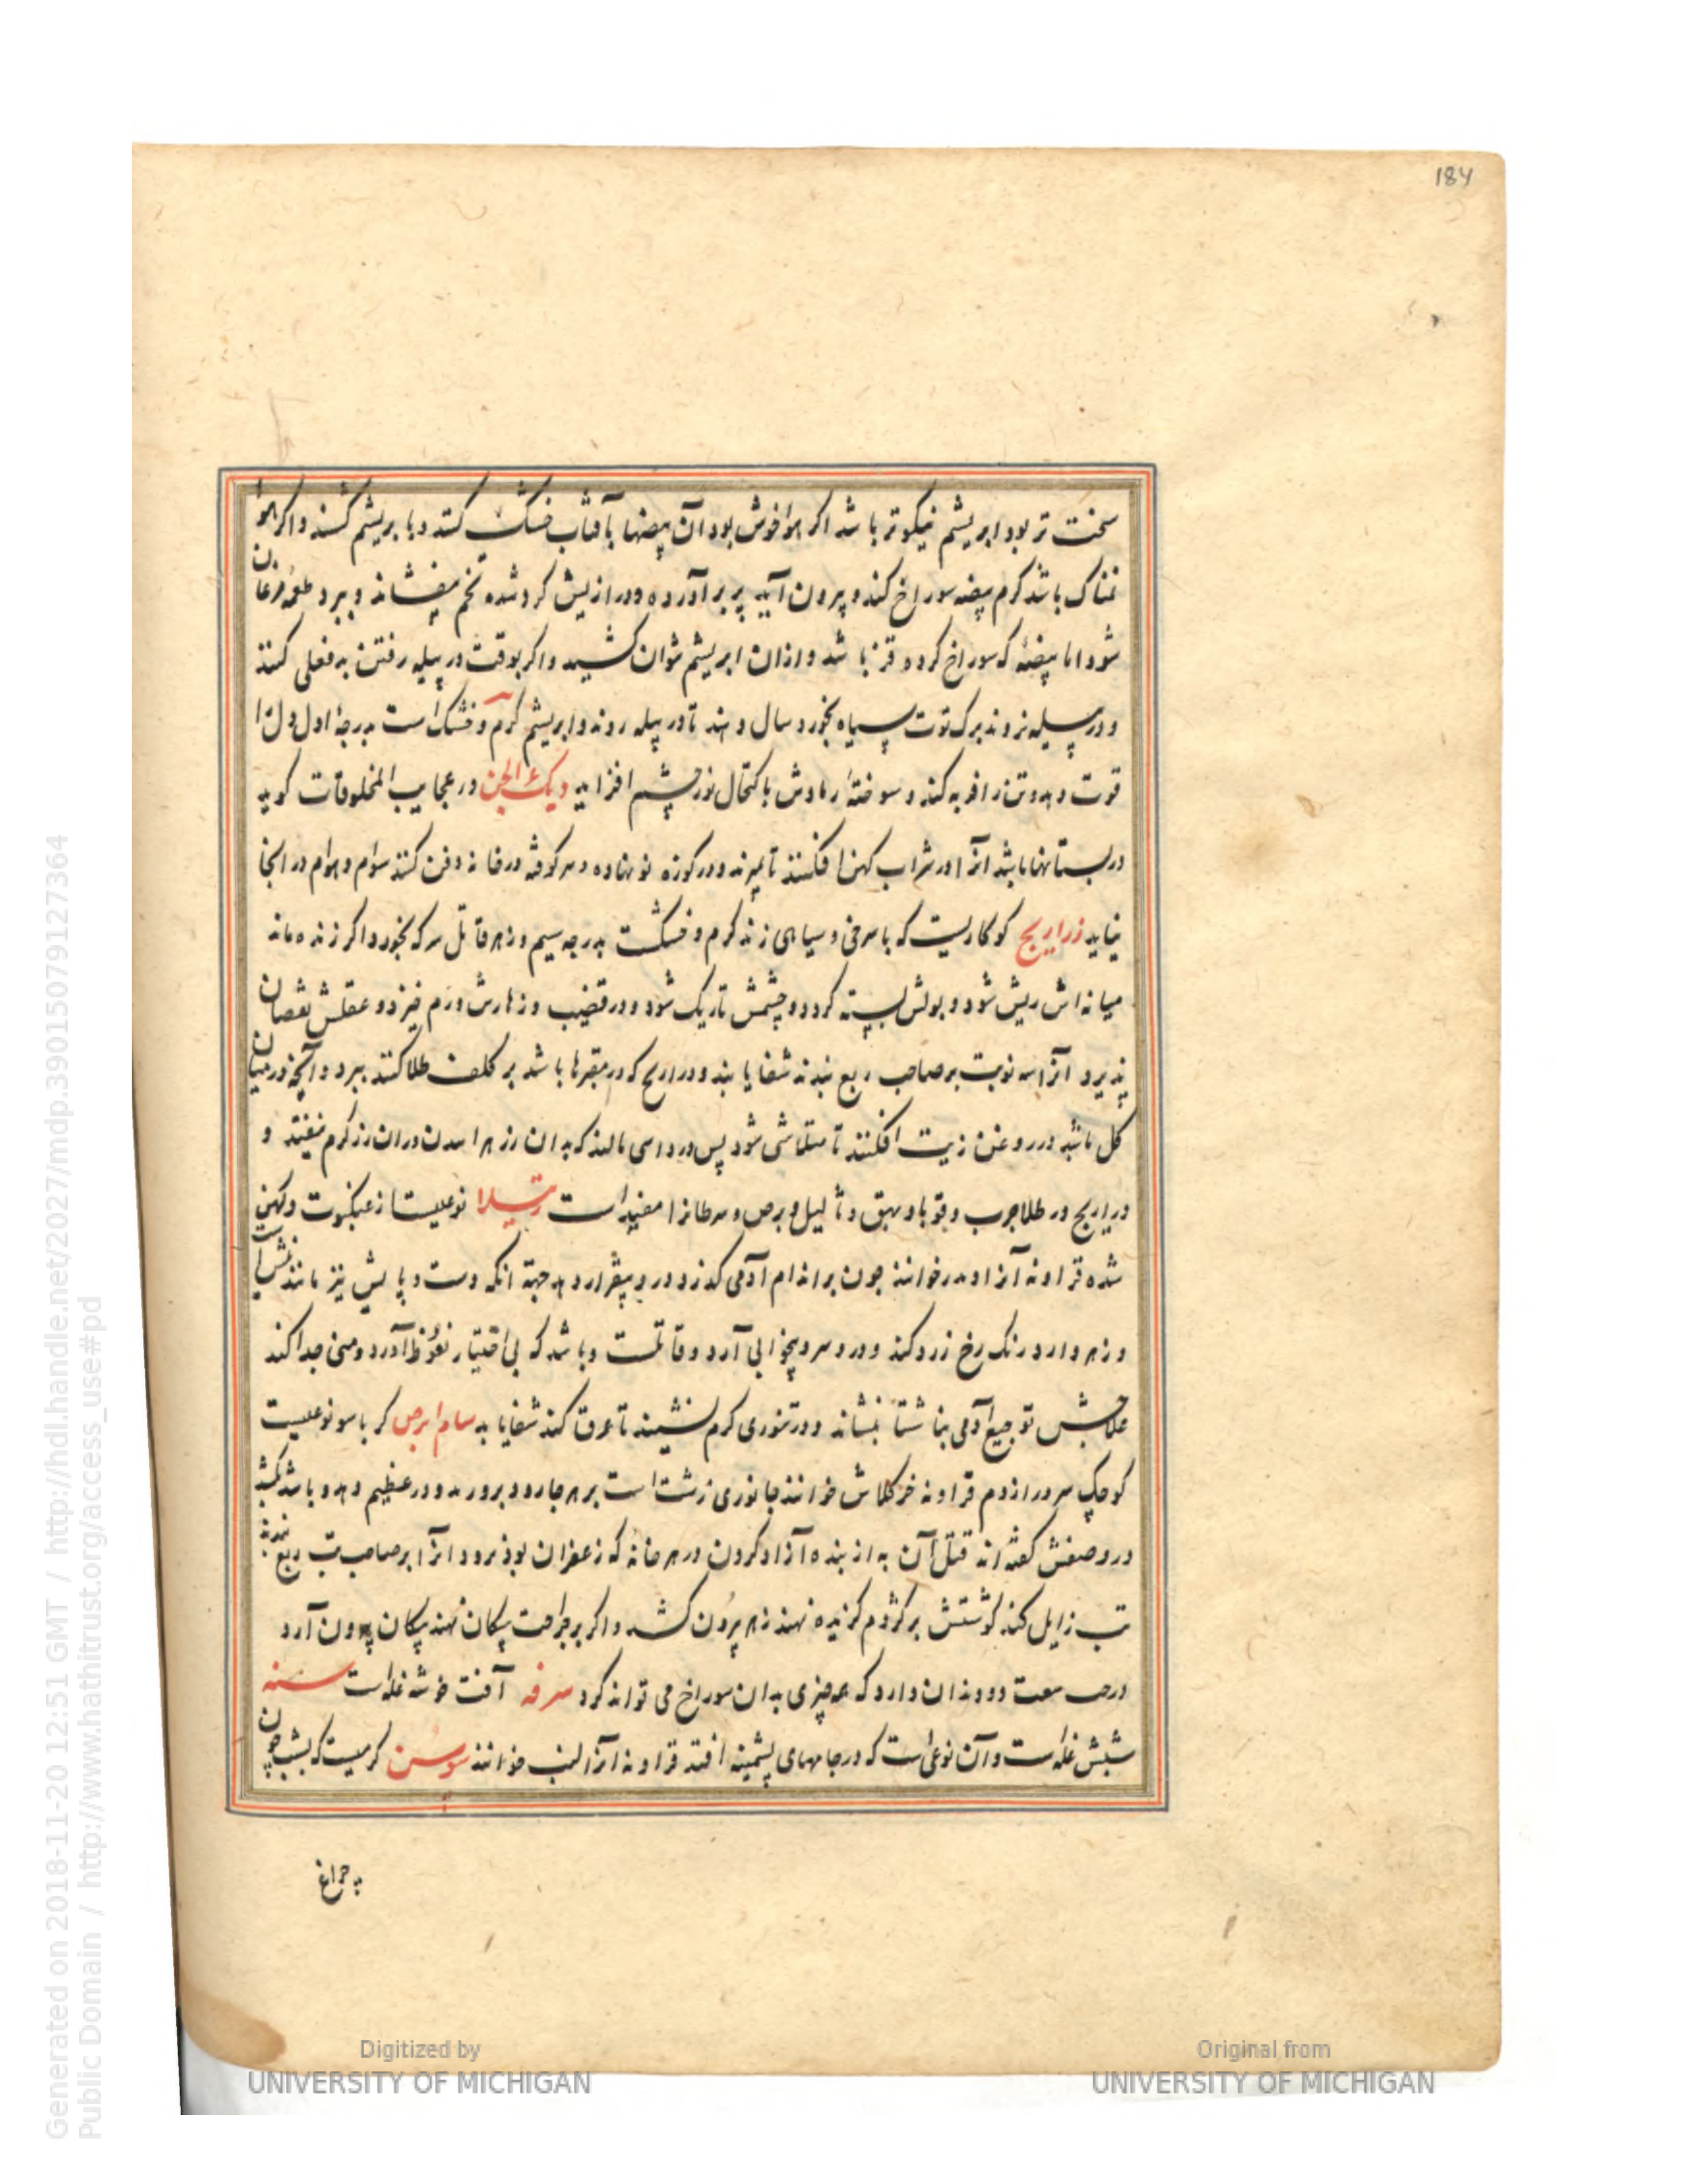 184
سخت تر بود ابریشم نیکوتر باشد اکر هوا خوش بود آن بیضها بآفتاب خشک کنند و با بریشم کشند و اکر هوا
نمناک باشد کرم بیضه سوراخ کند و بیرون آید پر برآورده و دراز نیش کرد شده تخم بیفشاند و بپرد طعمه مرغان
شود اما بیضهٔ که سوراخ کرده قز باشد و ازان ابریشم نتوان کشید و اکر بوقت در پیله رفتن به فعلی کنند
و در پیله نروند برک توت سیاه بخورد سال دهند تا در پیله روند و ابریشم کرم و خشک است بدرجهٔ اول دل را
قوت دهد و تن را فربه کند و سوختهٔ رمادش باکتحال نور چشم افزاید دیک الجن در عجایب المخلوقات کوید
در بستانها باشد آنرا در شراب کهن افکنند تا بمیرند و در کوزه نو نهاده و سر کوفته در خانه دفن کنند سوام و هوام در انجا
نیاید ذراریح کوکاریست که با سرخی و سیاهی زند کرم و خشکست بدرجه سیم و زهر قاتل هر که بخورد اکر زنده ماند
میانه اش ریش شود و بولش بسته کردد و چشمش تاریک شود و در قضیب و زهارش ورم خیزد و عقلش نقصان
پذیرد آنرا سه نوبت بر صاحب ربع بندند شفا یابند و ذراریح که در مقبرها باشد بر کلف طلا کنند ببرد و آنچه در میان
کل باشد در روغن زیت افکنند تا متلاشی شود پس در داسی مالند که بدان رز هرا بدن دران رز کرم نیفتد و
ذراریح در طلا جرب و قوبا و بهق و ثالیل و برص و سرطانرا مفید است رتیلا نوعیست از عنکبوت و کهن
شده قراونه آنرا اومدر خوانند چون بر اندام آدمی کذرد درد و بیقرار دهد جهة انکه دست و پایش نیز مانند نیش است
و زهر دارد رنک رخ زرد کند و درد سر و بیخوابی آرد و قاتلست و باشد که بی اختیار نعوظ آورد و منی جدا کند
علاجش توجیع آدمی بناشتا بنشاند و در تنوری کرم نشیند تا عرق کند شفا یابد سام ابرص کرباسو نوعیست
کوچک سر دراز دم قراونه خرکلاش خوانند جانوری زشت است بر هر جا رود بر ورم و درد عظیم دهد و باشد بکشد
در وصفش کفته اند قتل آن به از بنده آزاد کردن در هر خانه که زعفران بود نرود انرا بر صاحب تب ربع بندند
تب زایل کند کوشتش بر کژدم کزیده نهند زهر بیرون کشد و اکر بر جراحت پیکان نهند پیکان بیرون آرد
در دو دندان دارد که هر چیزی بدان سوراخ می تواند کرد سرفه آفت خوشه غله است سنه
شبش غله است و آن نوعی است که در جامهای پشمینه افتد قراونه آنرا خوانند سوسن کرمیست که بشب چون
چراغ
Generated on 2018-11-20 12:51 GMT / http://hdl.handle.net/2027/mdp.39015079127364
Public Domain / http://www.hathitrust.org/access_use#pd
Digitized by
UNIVERSITY OF MICHIGAN
Original from
UNIVERSITY OF MICHIGAN